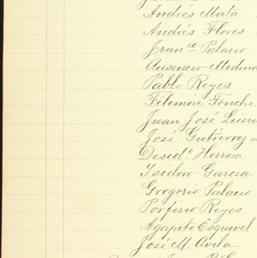 Andrés Mata
Andrés Flores
Franco Palacio
Ausencio Medina
Pablo Reyes
Filemón
Juan José Luna
José Gutierrez
Desedo Herrera
Ysidoro Garcia
Gregorio Palacio
Porferio Reyes
Agapito Esquivel
José M. Avila